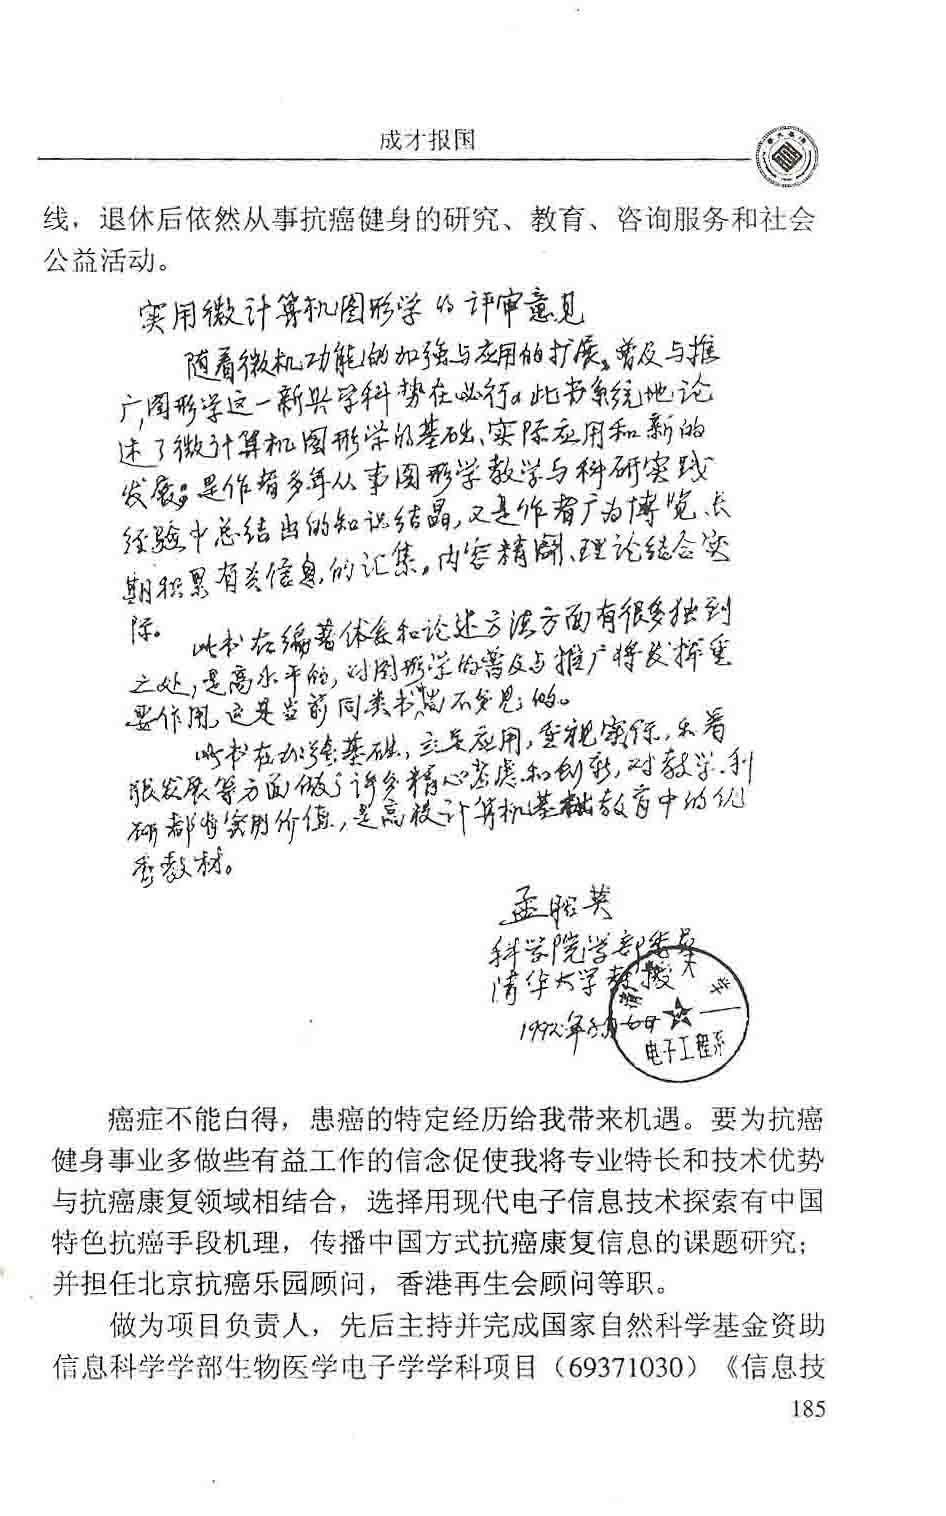 成才报国
线，退休后依然从事抗癌健身的研究、教育、咨询服务和社会
公益活动。
实用微计算机图形学的评审意见
随着微机功能的加强与应用的扩展，普及与推
广图形学这一新兴学科势在必行。此书系统地论
述了微计算机图形学的基础、实际应用和新的
发展；是作者多年从事图形学教学与科研实践
经验中总结出的知识结晶，又是作者广为博览、长
期积累有关信息的汇集。内容精辟、理论结合实
际。
此书在编著体系和论述方法方面有很多独到
之处，是高水平的，对图形学的普及与推广将发挥重
要作用，这是当前同类书尚不多见的。
此书在加强基础，立足应用，重视实际，
发展等方面做了许多精心考虑和创新，对教学、科
研都有实用价值，是高校计算机基础教育中的优
秀教材。
孟昭英
科学院学部委员
清华大学教授
1992年
清 华 大 学
电子工程系
癌症不能白得，患癌的特定经历给我带来机遇。要为抗癌
健身事业多做些有益工作的信念促使我将专业特长和技术优势
与抗癌康复领域相结合，选择用现代电子信息技术探索有中国
特色抗癌手段机理，传播中国方式抗癌康复信息的课题研究；
并担任北京抗癌乐园顾问，香港再生会顾问等职。
做为项目负责人，先后主持并完成国家自然科学基金资助
信息科学学部生物医学电子学学科项目（69371030）《信息技
185